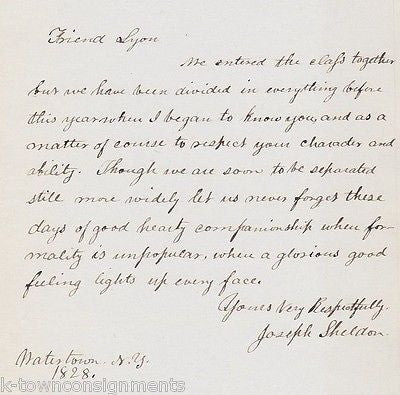 Friend Lyon
We entered the class together
but we have been divided in everything before
this year when I began to know you, and as a
matter of course to respect your character and
ability. Though we are soon to be separated
still more widely let us never forget these
days of good hearty companionship when for-
mality is unpopular, when a glorious good
feeling lights up every face.
Yours Very Respectfully.
Joseph Sheldon.
Watertown. N.Y.
1828.
k-townconsignments